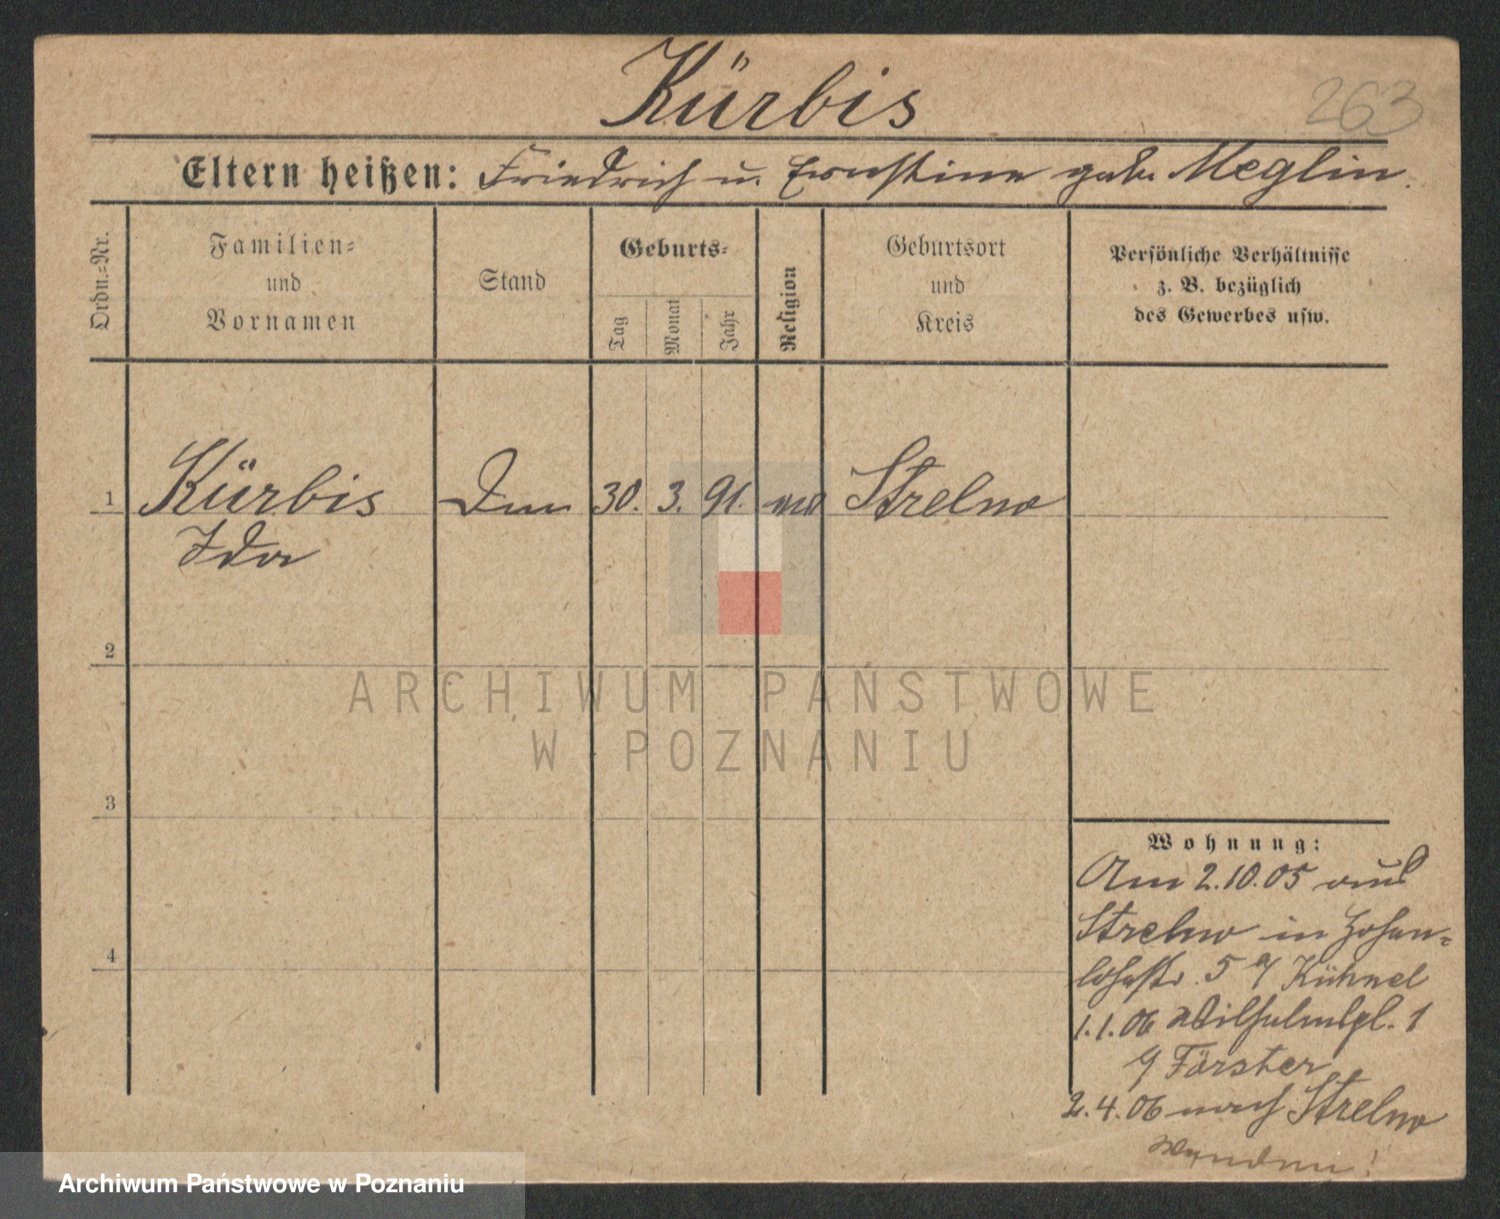 Kürbis
263
Eltern heißen: Friedrich u. Ernstine geb. Meglin.
Ordn.=Nr.
Familien=
und
Vornamen
Stand
Geburts=
Tag
Monat
Jahr
Religion
Geburtsort
und
Kreis
Persönliche Verhältnisse
z. B. bezüglich
des Gewerbes usw.
1 Kürbis 30. 3. 91. Strelno
Ida
2
3
4
ARCHIWUM PAŃSTWOWE
W POZNANIU
Wohnung:
Am 2.10.05 aus
Strelno in Hohen=
lohestr. 5 Kühnel
1.1.06 Wilhelmspl. 1
Förster
2.4.06 nach Strelno
Wenden!
Archiwum Państwowe w Poznaniu